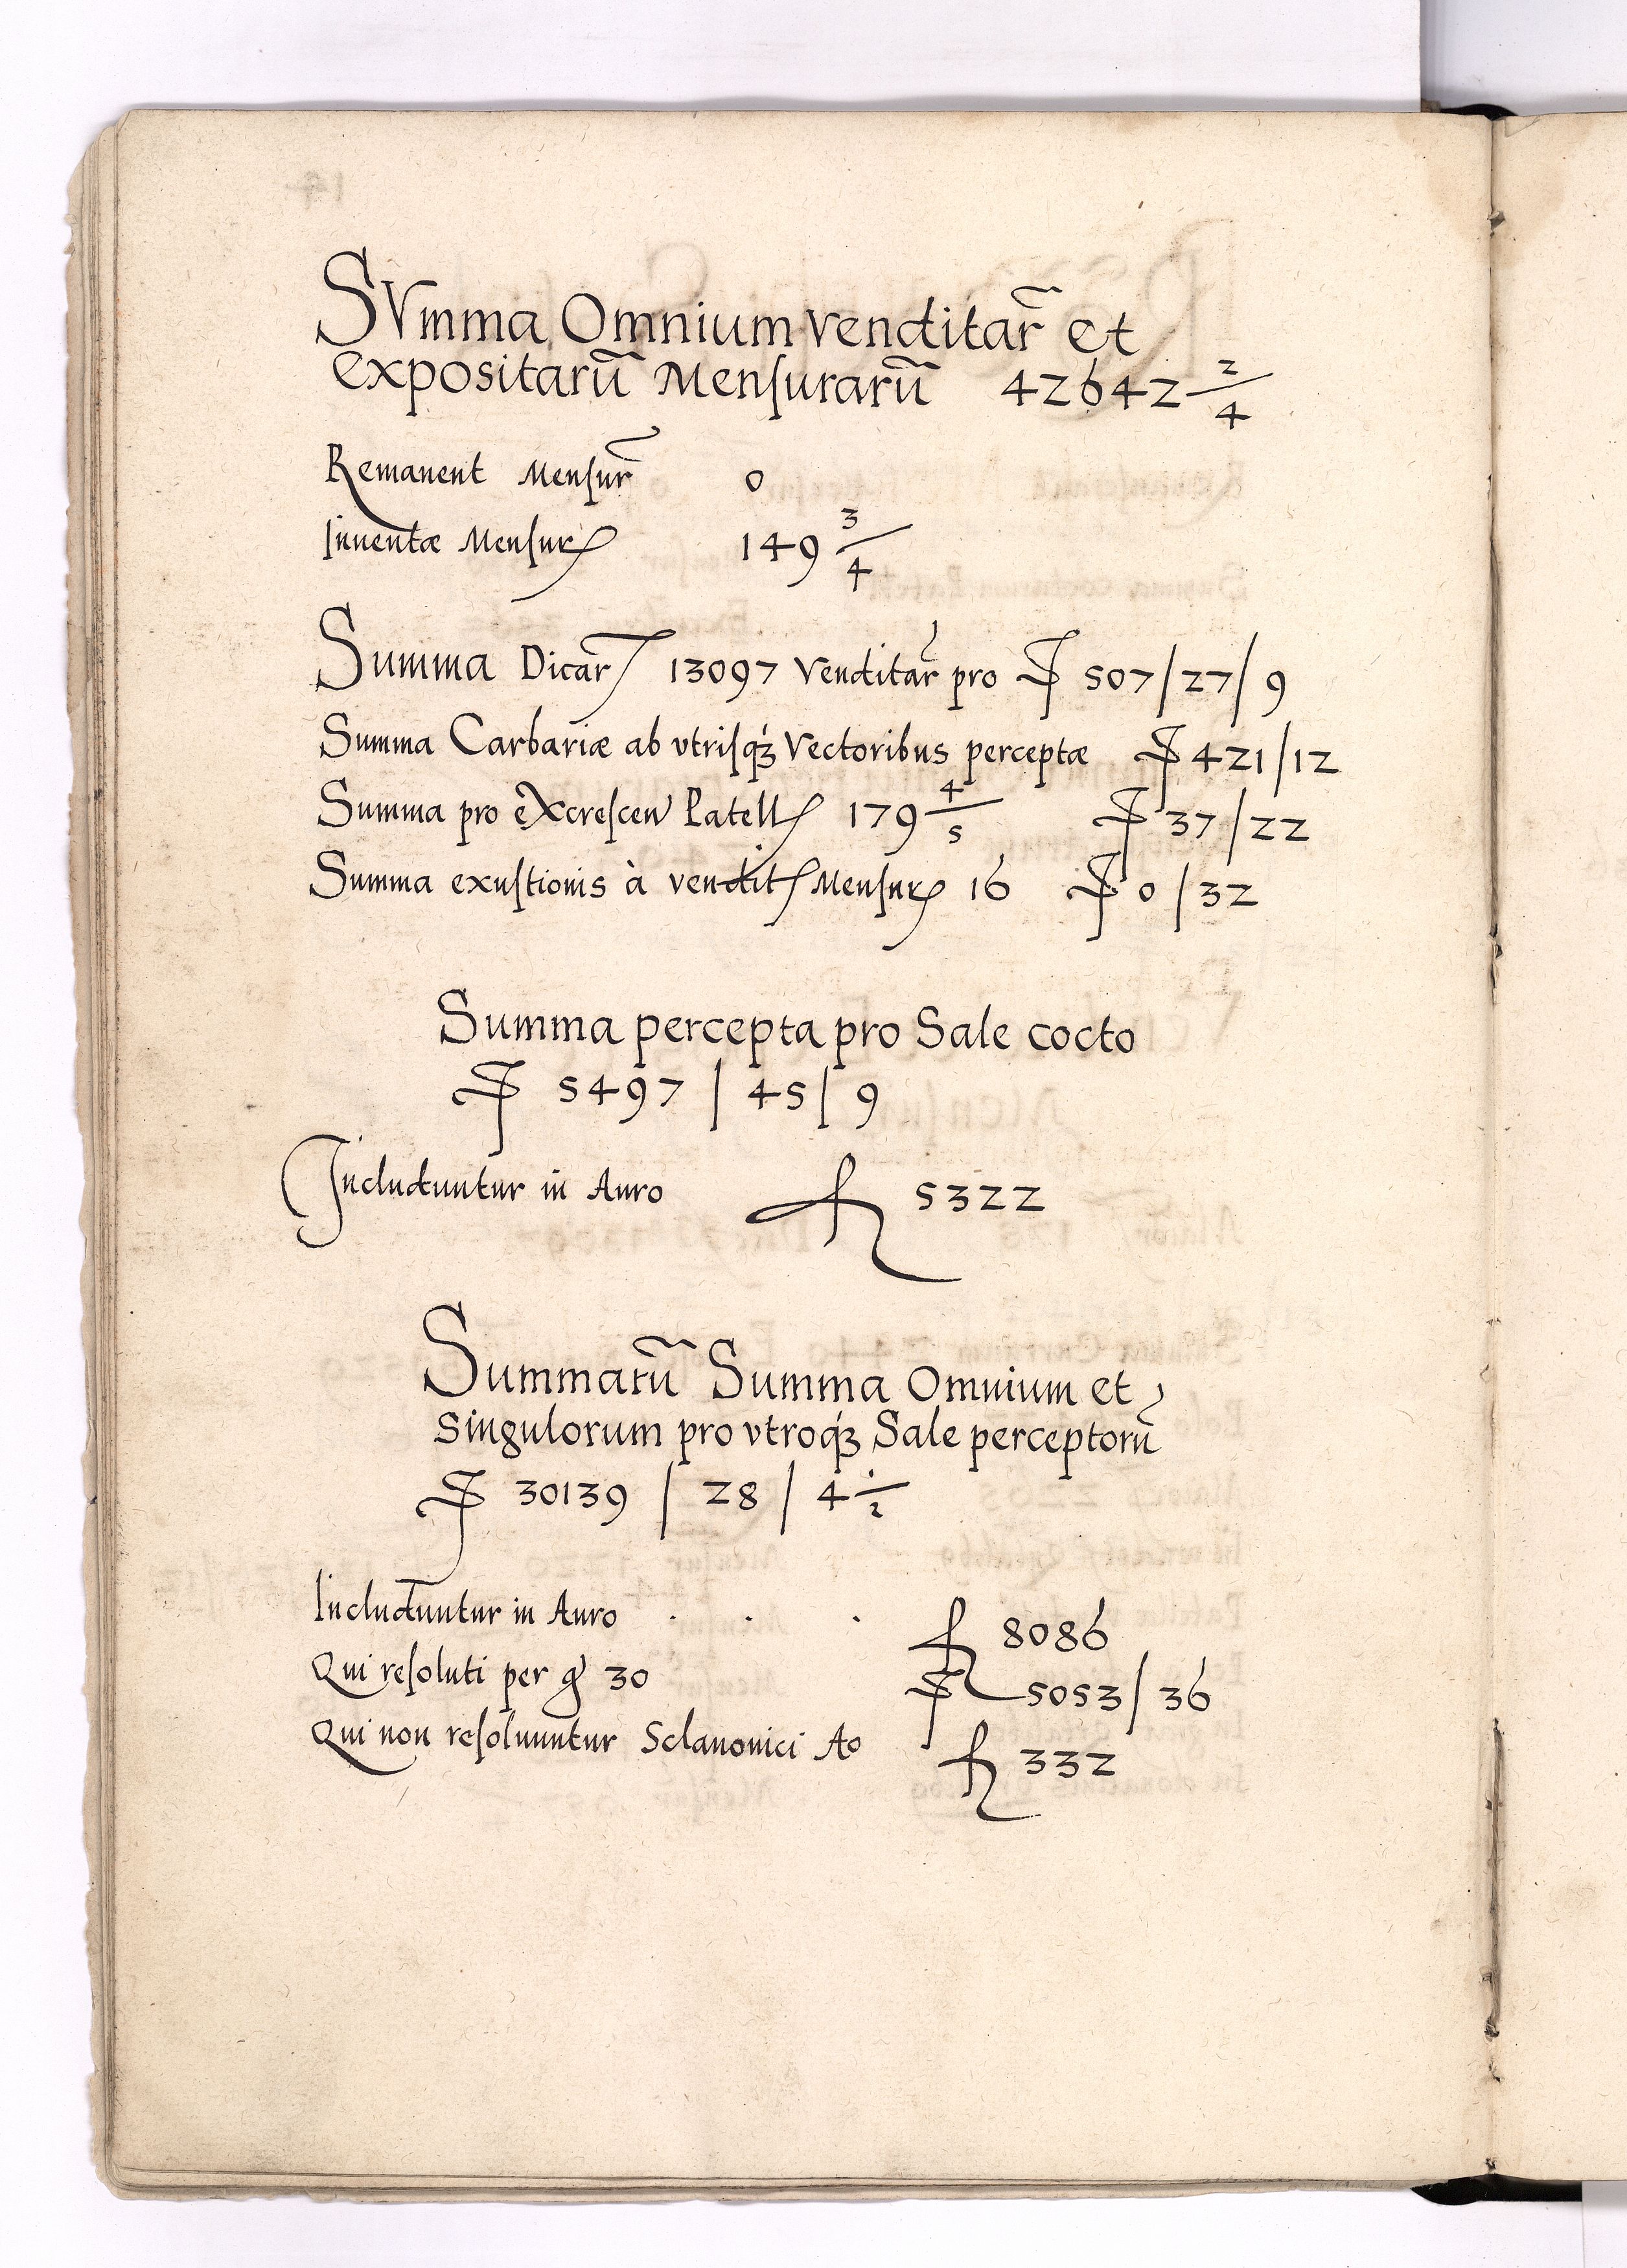 SVmma Omnium venditar̃ et
expositarũ Menſurarũ 42642 2/4
Remanent Menſur̃ 0
Inuentæ Menſur 149 3/4
Summa Dicar 13097 venditar̃ pro 507/27/9
Summa Carbariæ ab vtriſqꝫ Vectoribus perceptæ 421/12
Summa pro eXcreſcen Patell 179 4/5 37/22
Summa exuſtionis à vendit Menſur 16 0/32
Summa percepta pro Sale cocto
5497 | 45 | 9
Includuntur in Auro fl 5322
Summarũ Summa Omnium et
Singulorum pro vtroqꝫ Sale perceptorũ
30139 / 28 / 4 1/2
Includuntur in Auro . . . fl 8086
Qui reſoluti per g 30 5053/36
Qui non reſoluuntur Sclauonici Ao fl 332